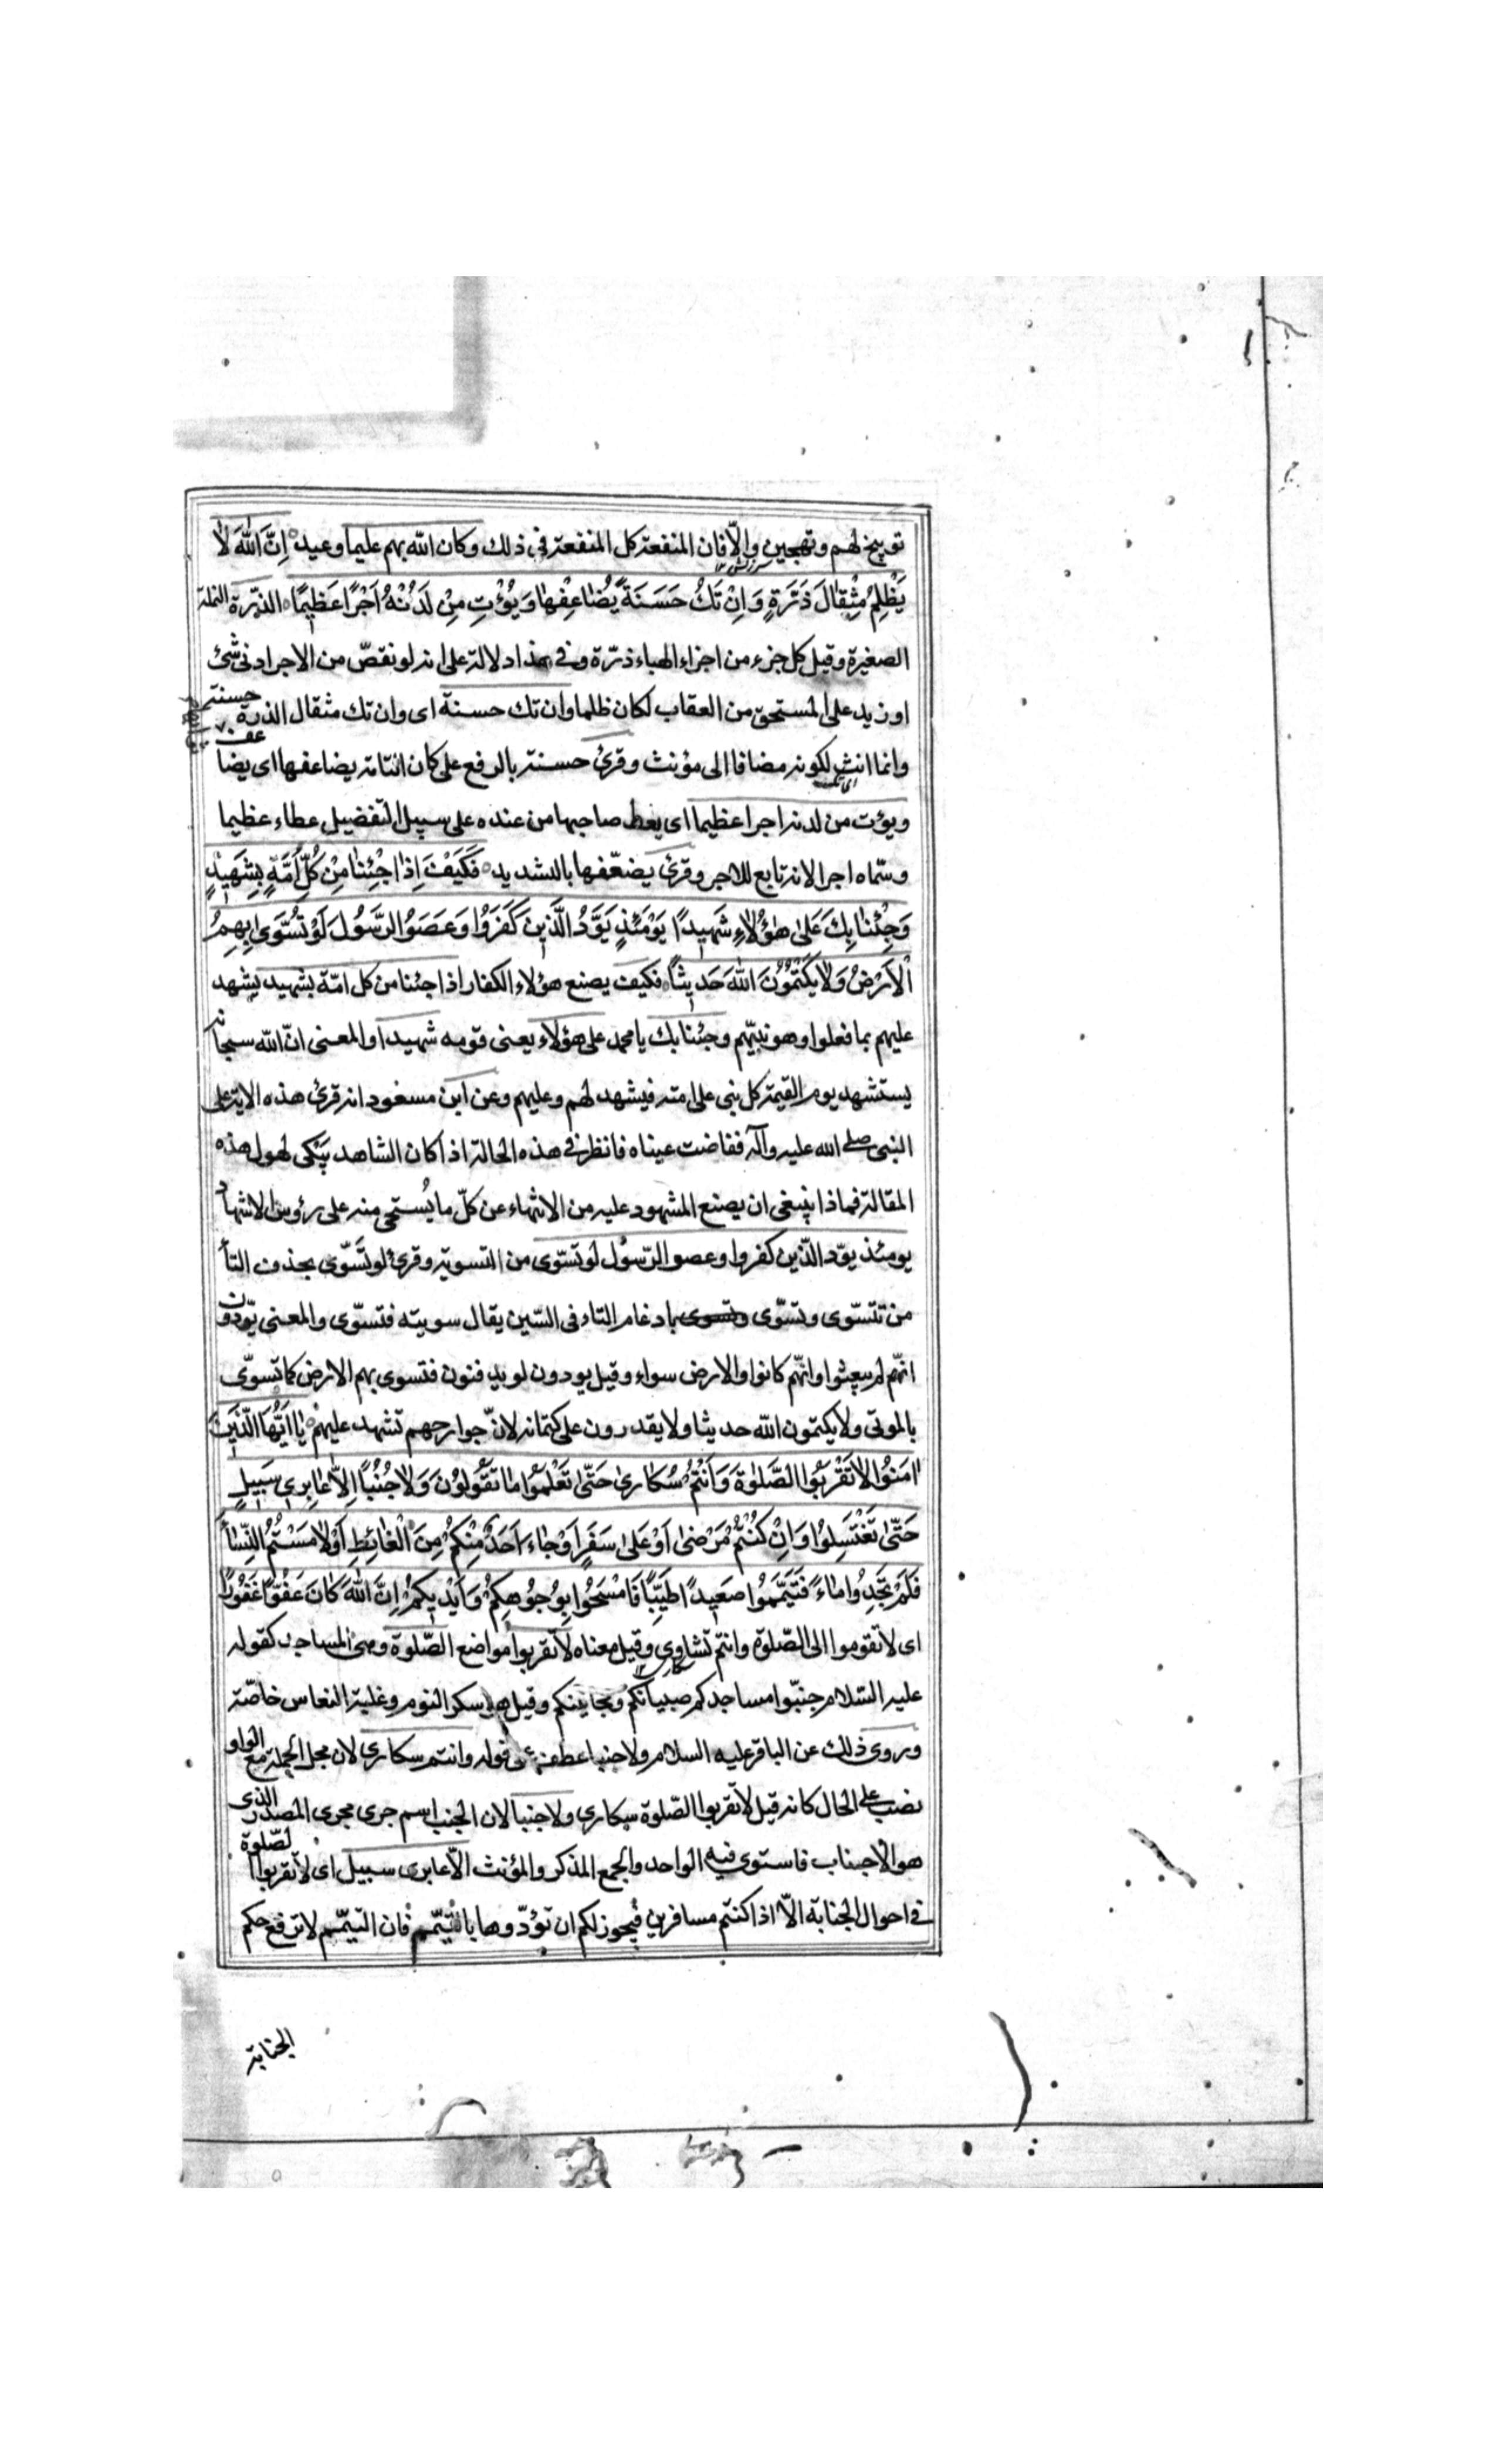 توبيخ لهم وتهجين والّا فان المنفعة كل المنفعة في ذلك وكان الله بهم عليما وعيد اِنَّ اللّٰهَ لَا
سرزنش ١٢
يَظْلِمُ مِثْقَالَ ذَرَّةٍ وَاِنْ تَكُ حَسَنَةً يُضَاعِفْهَا وَيُؤْتِ مِنْ لَدُنْهُ اَجْرًا عَظِيمًا الذرّة النملة
الصغيرة وقيل كل جزء من اجزاء الهباء ذرّة وفي هذا دلالة على انه لو نقصّ من الاجر ادنى شئ
او زيد على المستحق من العقاب لكان ظلما وان تك حسنة اى وان تك مثقال الذرة حسنة
وانما انث لكونه مضافا الى مؤنث وقرئ حسنة بالرفع على كان التامة يضاعفها اى يضاعف
ويؤت من لدنه اجرا عظيما اى يعط صاحبها من عنده على سبيل التفضيل عطاء عظيما
وسمّاه اجرا لانه تابع للاجر وقرئ يضعّفها بالتشديد فَكَيْفَ اِذَا جِئْنَا مِنْ كُلِّ اُمَّةٍ بِشَهِيْدٍ
وَجِئْنَا بِكَ عَلَى هٰؤُلَاءِ شَهِيدًا يَوْمَئِذٍ يَوَدُّ الَّذِينَ كَفَرَوُا وَعَصَوُا الرَّسُولَ لَوْ تُسَّوَى بِهِمُ
الْاَرْضُ وَلَا يَكْتُمُوْنَ اللّٰهَ حَدِيثًا فكيف يصنع هؤلاء الكفار اذا جئنا من كل امّة بشهيد يشهد
عليهم بما فعلوا وهو نبيّهم وجئنا بك يا محمد على هؤلاء يعنى قومه شهيدا والمعنى انّ الله سبحانه
يستشهد يوم القيمة كل نبى على امته فيشهد لهم وعليهم وعن ابن مسعود انه قرئ هذه الاية على
النبى صلى الله عليه وآله ففاضت عيناه فانظر في هذه الحالة اذا كان الشاهد يبكى لهول هذه
المقالة فماذا ينبغى ان يصنع المشهود عليه من الانتهاء عن كلّ ما يُستحى منه على رؤس الاشهاد
يومئذ يودّ الّذين كفروا وعصوا الرّسول لو تسّوى من التسوية وقرئ لو تَسَّوّى بحذف التأ
من تتسّوى وتسّوّى وتسوى بادغام التاء فى السّين يقال سويته فتسوّى والمعنى يوّدون
انّهم لم يبعثوا وانّهم كانوا والارض سواء وقيل يودون لو يدفنون فتسوى بهم الارض كما تسوّى
بالموتى ولا يكتمون الله حديثا ولا يقدرون على كتمانه لانّ جوارحهم تشهد عليهم يَا اَيُّهَا الَّذِينَ
اٰمَنُوا لَا تَقْرَبُوا الصَّلٰوةَ وَاَنْتُمْ سُكَارىٰ حَتّٰى تَعْلَمُوْا مَا تَقُولُوْنَ وَلَا جُنُبًا اِلَّا عَابِرِى سَبِيلٍ
حَتّٰى تَغْتَسِلُوا وَاِنْ كُنْتُمْ مَرْضىٰ اَوْ عَلىٰ سَفَرٍ اَوْ جَاءَ اَحَدٌ مِنْكُمْ مِنَ الْغَائِطِ اَوْ لَامَسْتُمُ النِّسَاءَ
فَلَمْ تَجِدُوا مَاءً فَتَيَمَّمُوا صَعِيدًا طَيِّبًا فَامْسَحُوا بِوُجُوهِكُمْ وَاَيْدِيكُمْ اِنَّ اللّٰهَ كَانَ عَفُوًّا غَفُورًا
اى لا تقوموا الى الصّلوة وانتم نشاوى وقيل معناه لا تقربوا مواضع الصّلوة وهى المساجد كقوله
عليه السّلام جنّبوا مساجدكم صبيانكم ومجانينكم وقيل هو سكر النوم وغلبة النعاس خاصّة
وروى ذلك عن الباقر عليه السلام ولا جنبا عطف على قوله وانتم سكارى لان محل الجملة مع الواو
نصب على الحال كانه قيل لا تقربوا الصّلوة سكارى ولا جنبا لان الجنب اسم جرى مجرى المصدر الذى
هو الاجناب فاستوى فيه الواحد والجمع المذكر والمؤنث الّا عابرى سبيل اى لا تقربوا الصّلوة
فى احوال الجنابة الّا اذا كنتم مسافرين فيجوز لكم ان تؤدّوها بالتيمّم فان التيمّم لا ترفع حكم
الجنابة